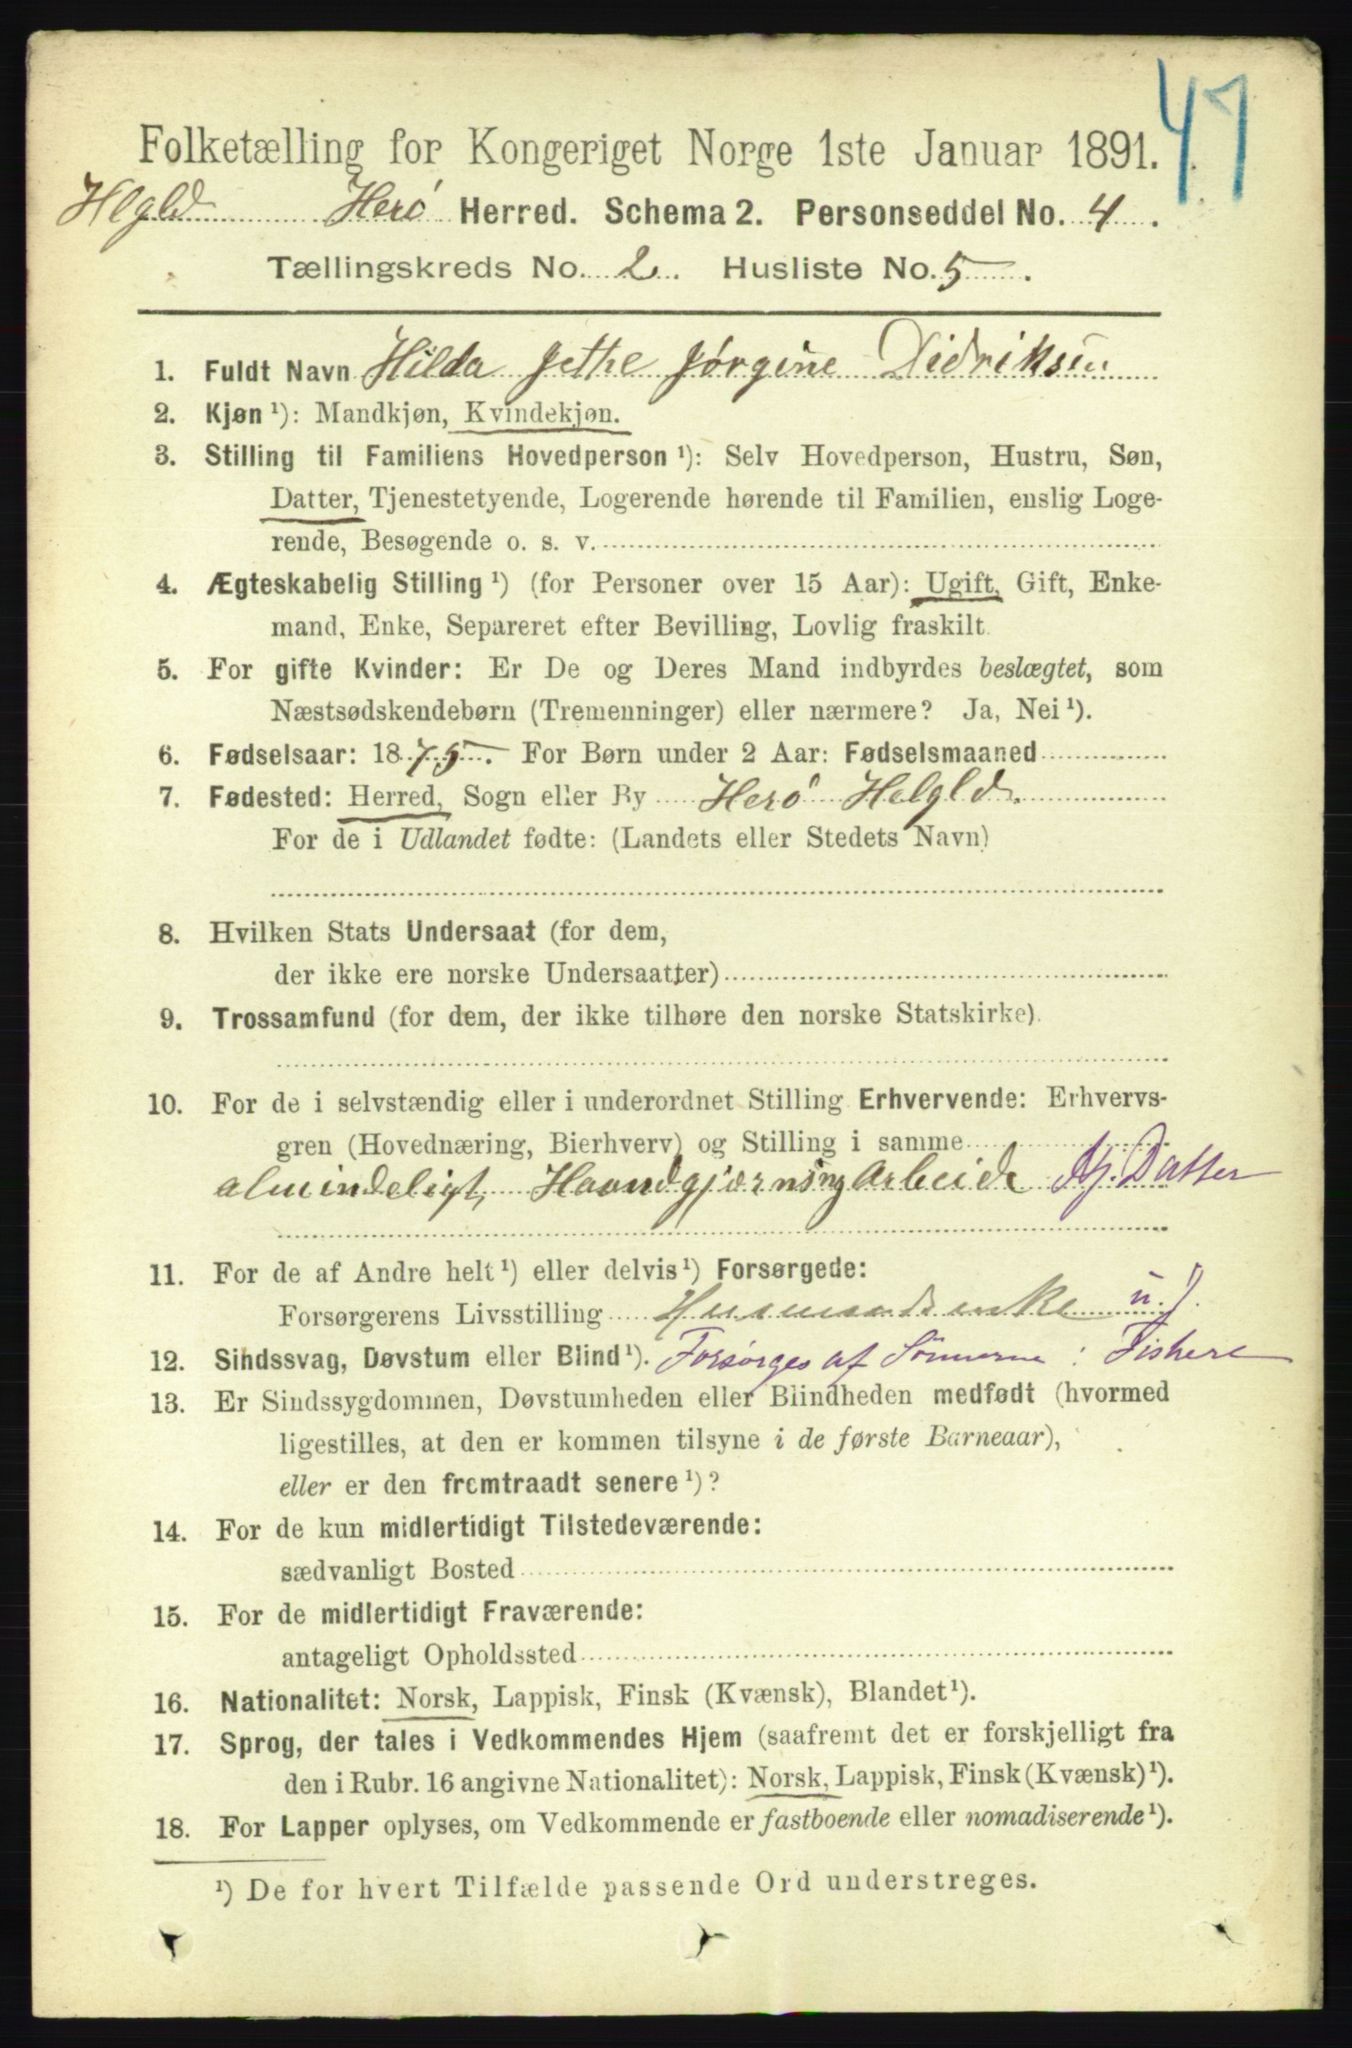 47
Folketælling for Kongeriget Norge 1ste Januar 1891.
Hlgld Herø Herred. Schema 2. Personseddel No. 4.
Tællingskreds No. 2. Husliste No. 5.
1. Fuldt Navn Hilda Jethe Jørgine Didriksen
2. Kjøn ¹): Mandkjøn, Kvindekjøn.
3. Stilling til Familiens Hovedperson ¹): Selv Hovedperson, Hustru, Søn,
Datter, Tjenestetyende, Logerende hørende til Familien, enslig Loge-
rende, Besøgende o. s. v.
4. Ægteskabelig Stilling ¹) (for Personer over 15 Aar): Ugift, Gift, Enke-
mand, Enke, Separeret efter Bevilling, Lovlig fraskilt
5. For gifte Kvinder: Er De og Deres Mand indbyrdes beslægtet, som
Næstsødskendebørn (Tremenninger) eller nærmere? Ja, Nei ¹).
6. Fødselsaar: 1875. For Børn under 2 Aar: Fødselsmaaned
7. Fødested: Herred, Sogn eller By Herø Helgld.
For de i Udlandet fødte: (Landets eller Stedets Navn)
8. Hvilken Stats Undersaat (for dem,
der ikke ere norske Undersaatter)
9. Trossamfund (for dem, der ikke tilhøre den norske Statskirke).
10. For de i selvstændig eller i underordnet Stilling Erhvervende: Erhvervs-
gren (Hovednæring, Bierhverv) og Stilling i samme
almindeligt Haandgjærning Arbeide Hj. Datter
11. For de af Andre helt ¹) eller delvis ¹) Forsørgede:
Forsørgerens Livsstilling Husmandsenke u. J.
12. Sindssvag, Døvstum eller Blind ¹). Forsørges af Sønnerne: Fiskere
13. Er Sindssygdommen, Døvstumheden eller Blindheden medfødt (hvormed
ligestilles, at den er kommen tilsyne i de første Barneaar),
eller er den fremtraadt senere ¹)?
14. For de kun midlertidigt Tilstedeværende:
sædvanligt Bosted
15. For de midlertidigt Fraværende:
antageligt Opholdssted
16. Nationalitet: Norsk, Lappisk, Finsk (Kvænsk), Blandet ¹).
17. Sprog, der tales i Vedkommendes Hjem (saafremt det er forskjelligt fra
den i Rubr. 16 angivne Nationalitet): Norsk, Lappisk, Finsk (Kvænsk) ¹).
18. For Lapper oplyses, om Vedkommende er fastboende eller nomadiserende ¹).
¹) De for hvert Tilfælde passende Ord understreges.